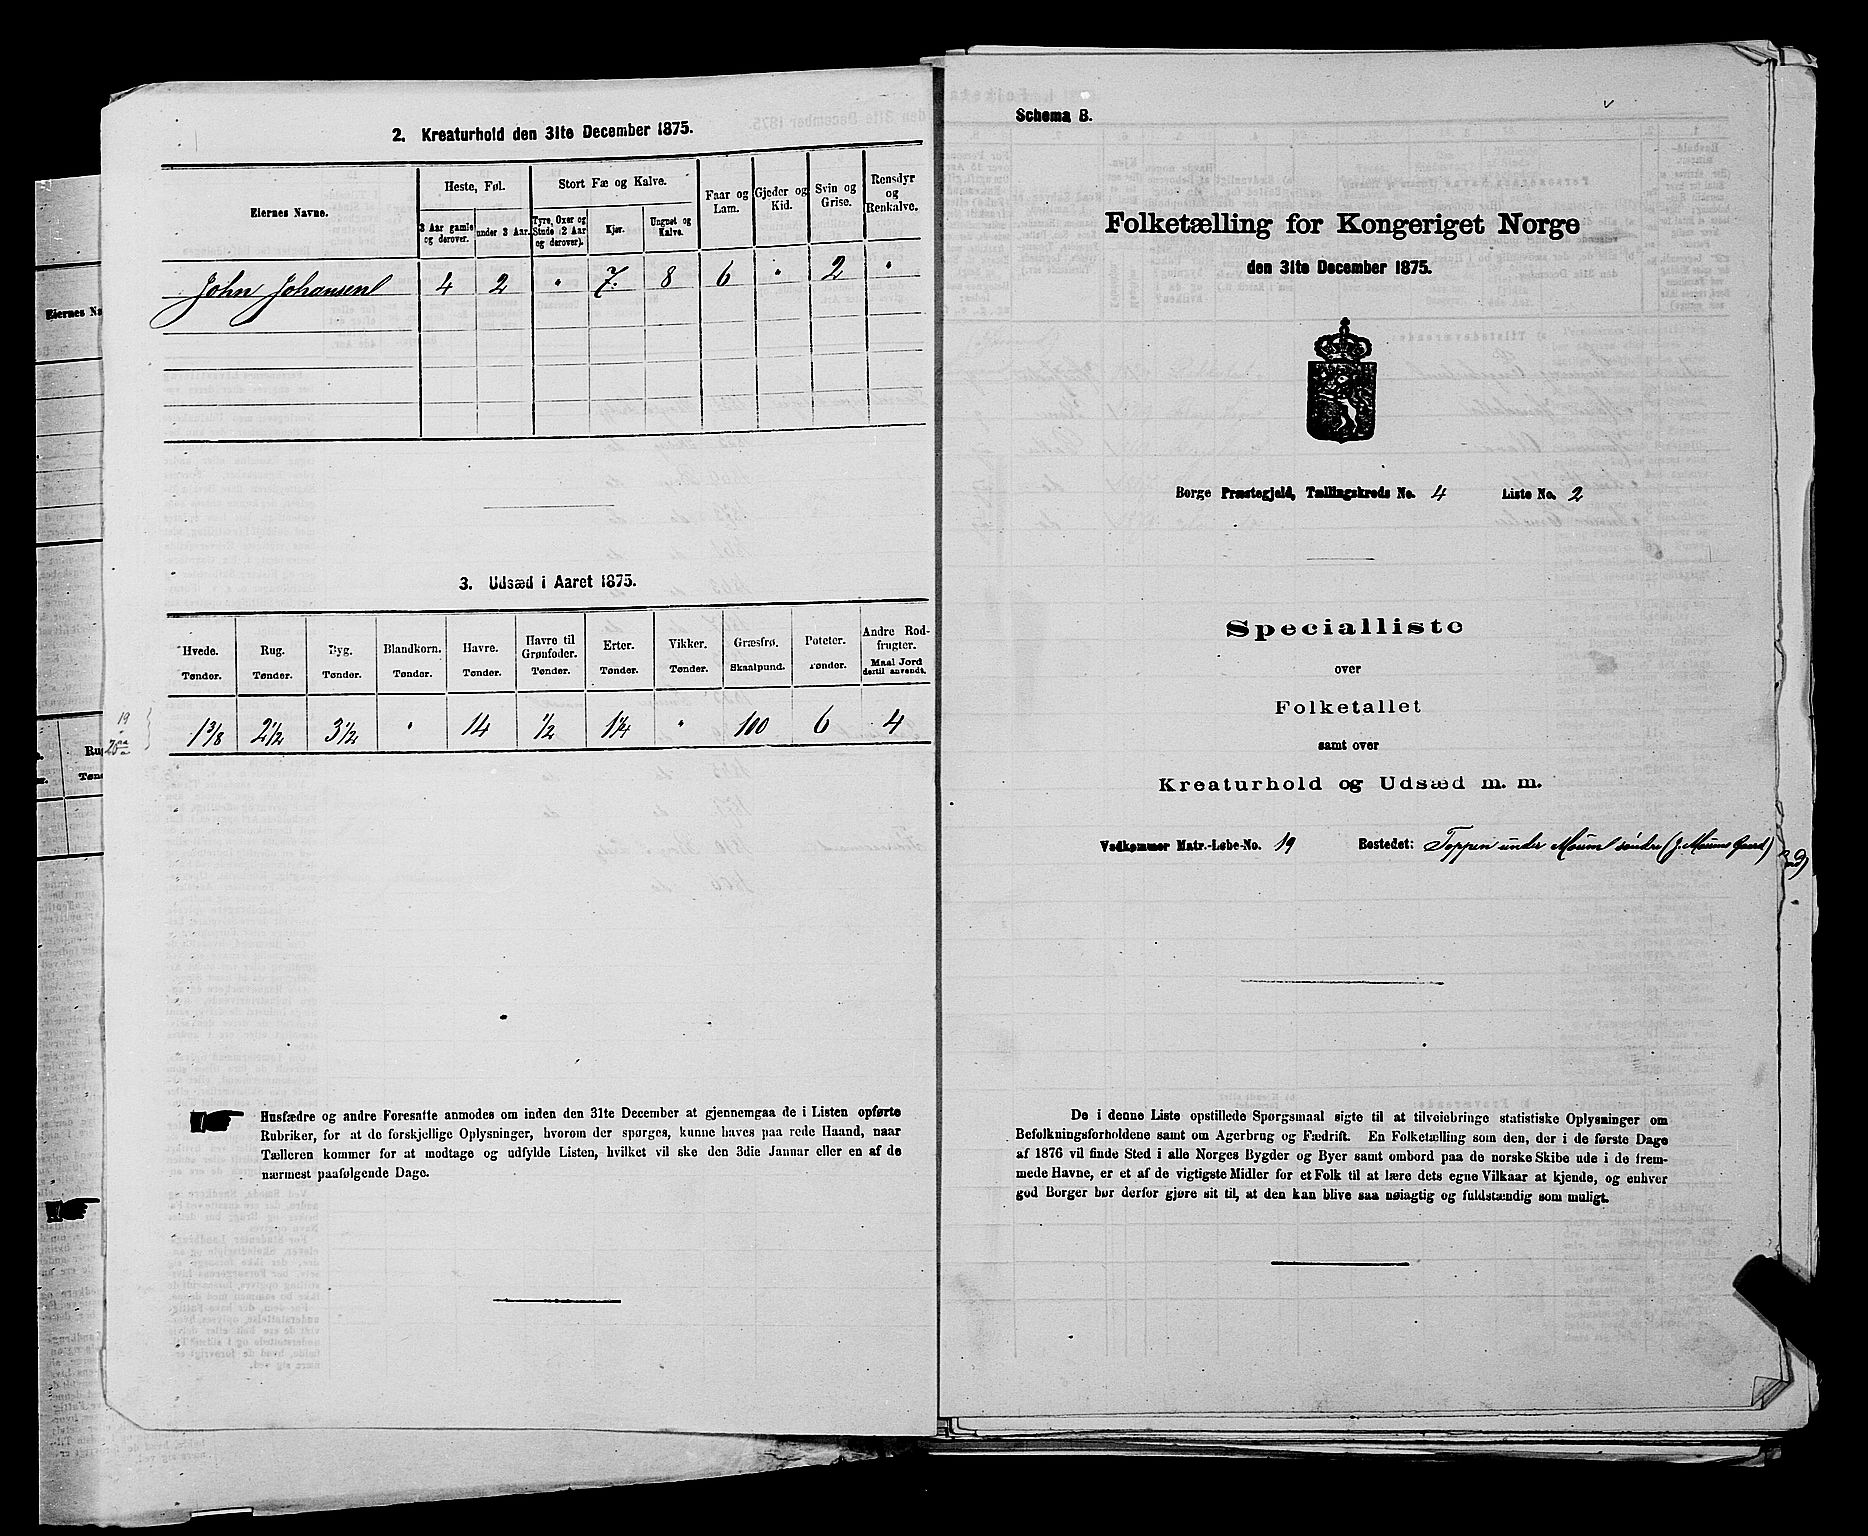 2. Kreaturhold den 31te December 1875.
Eiernes Navne.
Heste, Føl.
Stort Fæ og Kalve.
Faar og Lam.
Gjeder og Kid.
Svin og Grise.
Rensdyr og Renkalve.
3 Aar gamle og derover.
under 3 Aar.
Tyre, Oxer og Stude (2 Aar og derover).
Kjør.
Ungnøt og Kalve.
John Johansen 4 2 " 7. 8 6 " 2 "
3. Udsæd i Aaret 1875.
Hvede. Rug. Byg. Blandkorn. Havre. Havre til Grønfoder. Erter. Vikker. Græsfrø. Poteter. Andre Rodfrugter.
Tønder. Tønder. Tønder. Tønder. Tønder. Tønder. Tønder. Tønder. Skaalpund. Tønder. Maal Jord dertil anvendt.
1 3/8 2 1/2 3 1/2 " 14 1/2 1 1/4 " 100 6 4
Husfædre og andre Foresatte anmodes om inden den 31te December at gjennemgaa de i Listen opførte
Rubriker, for at de forskjellige Oplysninger, hvorom der spørges, kunne haves paa rede Haand, naar
Tælleren kommer for at modtage og udfylde Listen, hvilket vil ske den 3die Januar eller en af de
nærmest paafølgende Dage.
Eiernes Na
Rug
Tønd
Schema B.
Folketælling for Kongeriget Norge
den 31te December 1875.
Borge Præstegjeld, Tællingskreds No. 4 Liste No. 2
Specialliste
over
Folketallet
samt over
Kreaturhold og Udsæd m. m.
Vedkommer Matr.-Løbe-No. 19 Bostedet: Toppen under Moum søndre (J. Moums Gaard)
De i denne Liste opstillede Spørgsmaal sigte til at tilveiebringe statistiske Oplysninger om
Befolkningsforholdene samt om Agerbrug og Fædrift. En Folketælling som den, der i de første Dage
af 1876 vil finde Sted i alle Norges Bygder og Byer samt ombord paa de norske Skibe ude i de frem-
mede Havne, er et af de vigtigste Midler for et Folk til at lære dets egne Vilkaar at kjende, og enhver
god Borger bør derfor gjøre sit til, at den kan blive saa nøiagtig og fuldstændig som muligt.